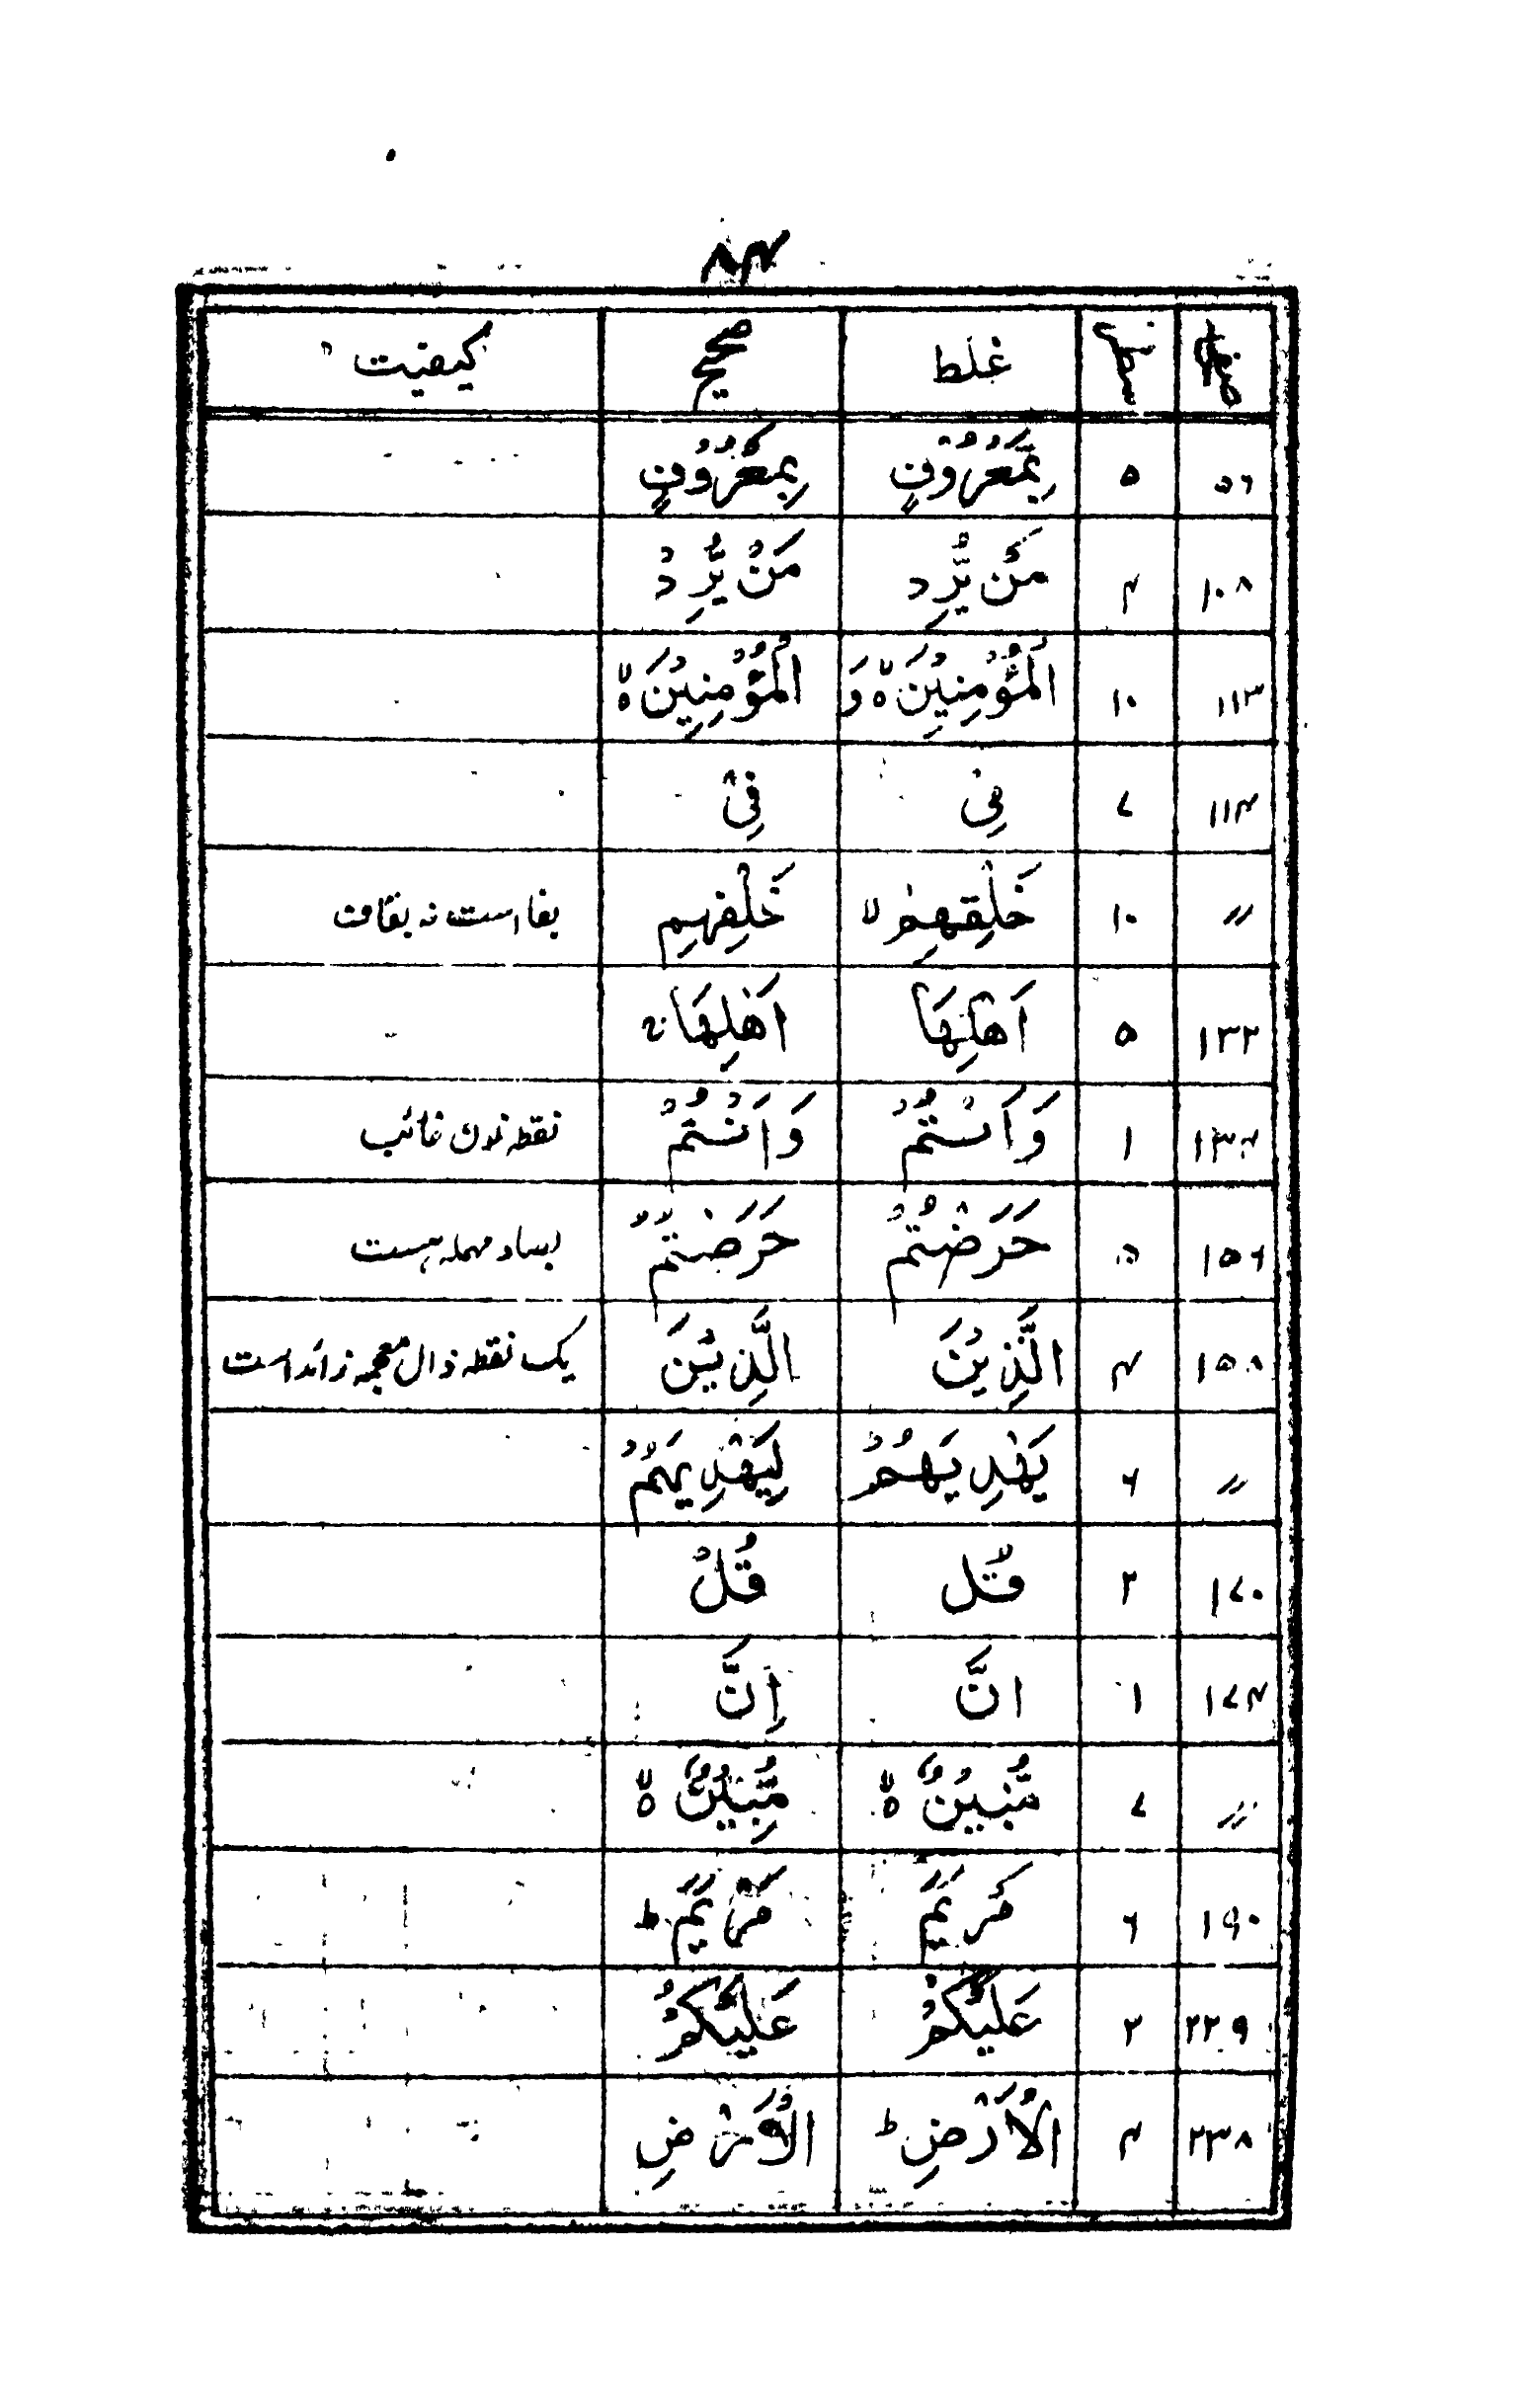 ۸۴
صفحہ سطر غلط صحیح کیفیت
۵۶ ۵ بِمَّعْرُوْفٍ بِمَعْرُوْفٍ
۱۰۸ ۴ مَنْ يُّرِد مَنْ يُّرِدْ
۱۱۳ ۱۰ الْمُؤْمِنِيْنَ ەۙ وَ الْمُؤْمِنِيْنَ ەۙ
۱۱۴ ۷ فِىْ فِىْۤ
〃 ۱۰ خَلْقِهِمْ ۙ خَلْفِهِم بفا است نہ بقاف
۱۳۲ ۵ اَهْلِهَا اَهْلِهَا
۱۳۴ ۱ وَاَنْتُمْ وَاَنْتُمْ نقطہ نون غائب
۱۵۶ ۵ حَرَضْتُمْ حَرَصْتُمْ بصاد مہملہ ہست
۱۵۸ ۴ الَّذِيْنَ الَّذِيْنَ یک نقطہ ذال معجمہ زائد است
〃 ۶ يَهْدِيَهُمْ لِيَهْدِيَهُمْ
۱۷۰ ۲ قُل قُلْ
۱۷۴ ۱ انَّ اِنَّ
〃 ۷ مُّبِيْنٌ ەۙ مُّبِيْنٌ ەۙ
۱۹۰ ۶ مَريَمَ مَرْيَمَ ؕ
۲۲۹ ۲ عَلَيْكُمْ عَلَيْكُمْ
۲۳۸ ۴ الْاَرْضِ ؕ الْاَرْضِ